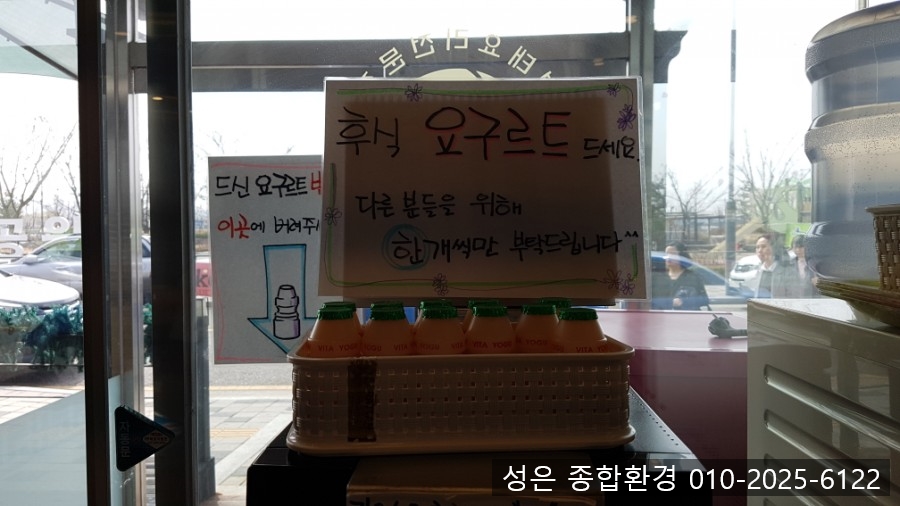 태요리전문
후식 요구르트 드세요.
다른 분들을 위해
한개씩만 부탁드립니다^^
드신 요구르트
이곳에 버려주
VITA YOGU
성은 종합환경 010-2025-6122